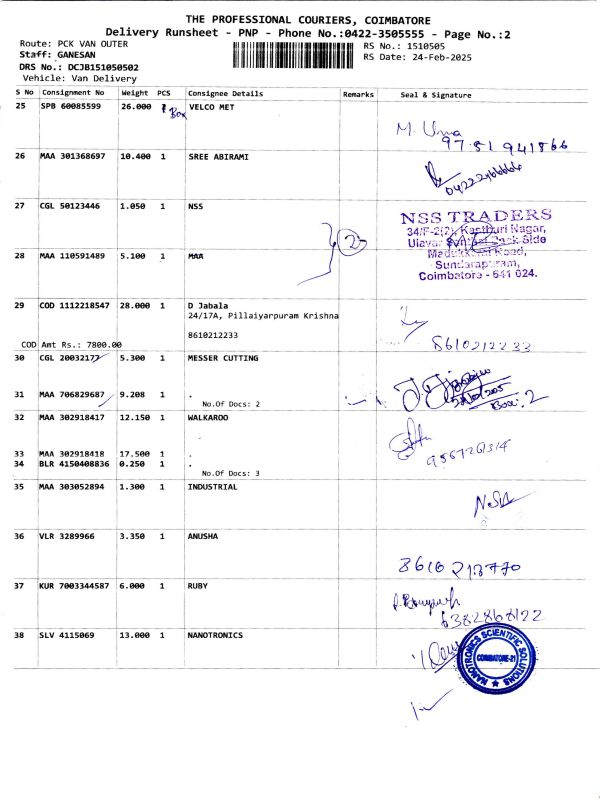 THE PROFESSIONAL COURIERS, COIMBATORE
Delivery Runsheet - PNP - Phone No.:0422-3505555 - Page No.:2
Route: PCK VAN OUTER
RS No.: 1510505
Staff: GANESAN
RS Date: 24-Feb-2025
DRS No.: DCJB151050502
Vehicle: Van Delivery
S No Consignment No Weight PCS Consignee Details Remarks Seal & Signature
25 SPB 60085599 26.000 Box VELCO MET
M. Uma
26 MAA 301368697 10.400 1 SREE ABIRAMI
27 CGL 50123446 1.050 1 NSS
NSS TRADERS
34/F-2(2), Kasthuri Nagar,
Side
Road,
Sundarapuram,
Coimbatore - 641 024.
2
28 MAA 110591489 5.100 1 MAA
29 COD 1112218547 28.000 1 D Jabala
24/17A, Pillaiyarpuram Krishna
8610212233
8610212233
COD Amt Rs.: 7800.00
30 CGL 20032177 5.300 1 MESSER CUTTING
31 MAA 706829687 9.208 1 .
No.Of Docs: 2
Box: 2
32 MAA 302918417 12.150 1 WALKAROO
33 MAA 302918418 17.500 1 .
34 BLR 4150408836 0.250 1 .
No.Of Docs: 3
35 MAA 303052894 1.300 1 INDUSTRIAL
36 VLR 3289966 3.350 1 ANUSHA
37 KUR 7003344587 6.000 1 RUBY
6382868122
38 SLV 4115069 13.000 1 NANOTRONICS
NANOTRONICS SCIENTIFIC SOLUTIONS
COIMBATORE-21